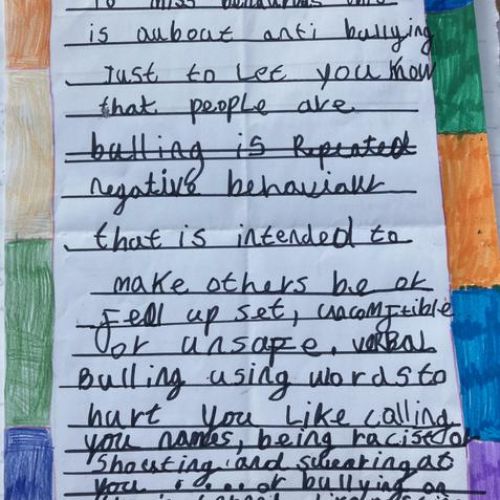 To miss
is aubout anti bullying
Just to let you know
that people are
bulling is Repeated
negative behaviour
that is intended to
make others be or
fell up set, uncomftible
or unsafe. verbal
Bulling using words to
hurt you Like calling
you names, being racist or
Shouting and swearing at
you ..... or bullying on